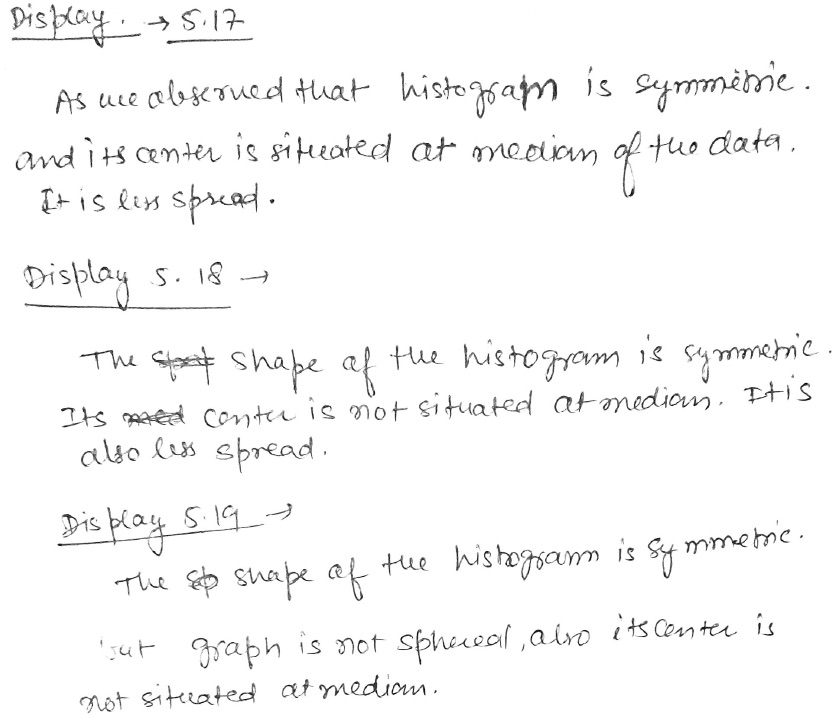 Display. → 5.17
As we observed that histogram is symmetric.
and its center is situated at median of the data.
It is less spread.
Display 5.18 →
The shape of the histogram is symmetric.
Its center is not situated at median. It is
also less spread.
Display 5.19 →
The shape of the histogram is symmetric.
but graph is not sphereal, also its center is
not situated at median.